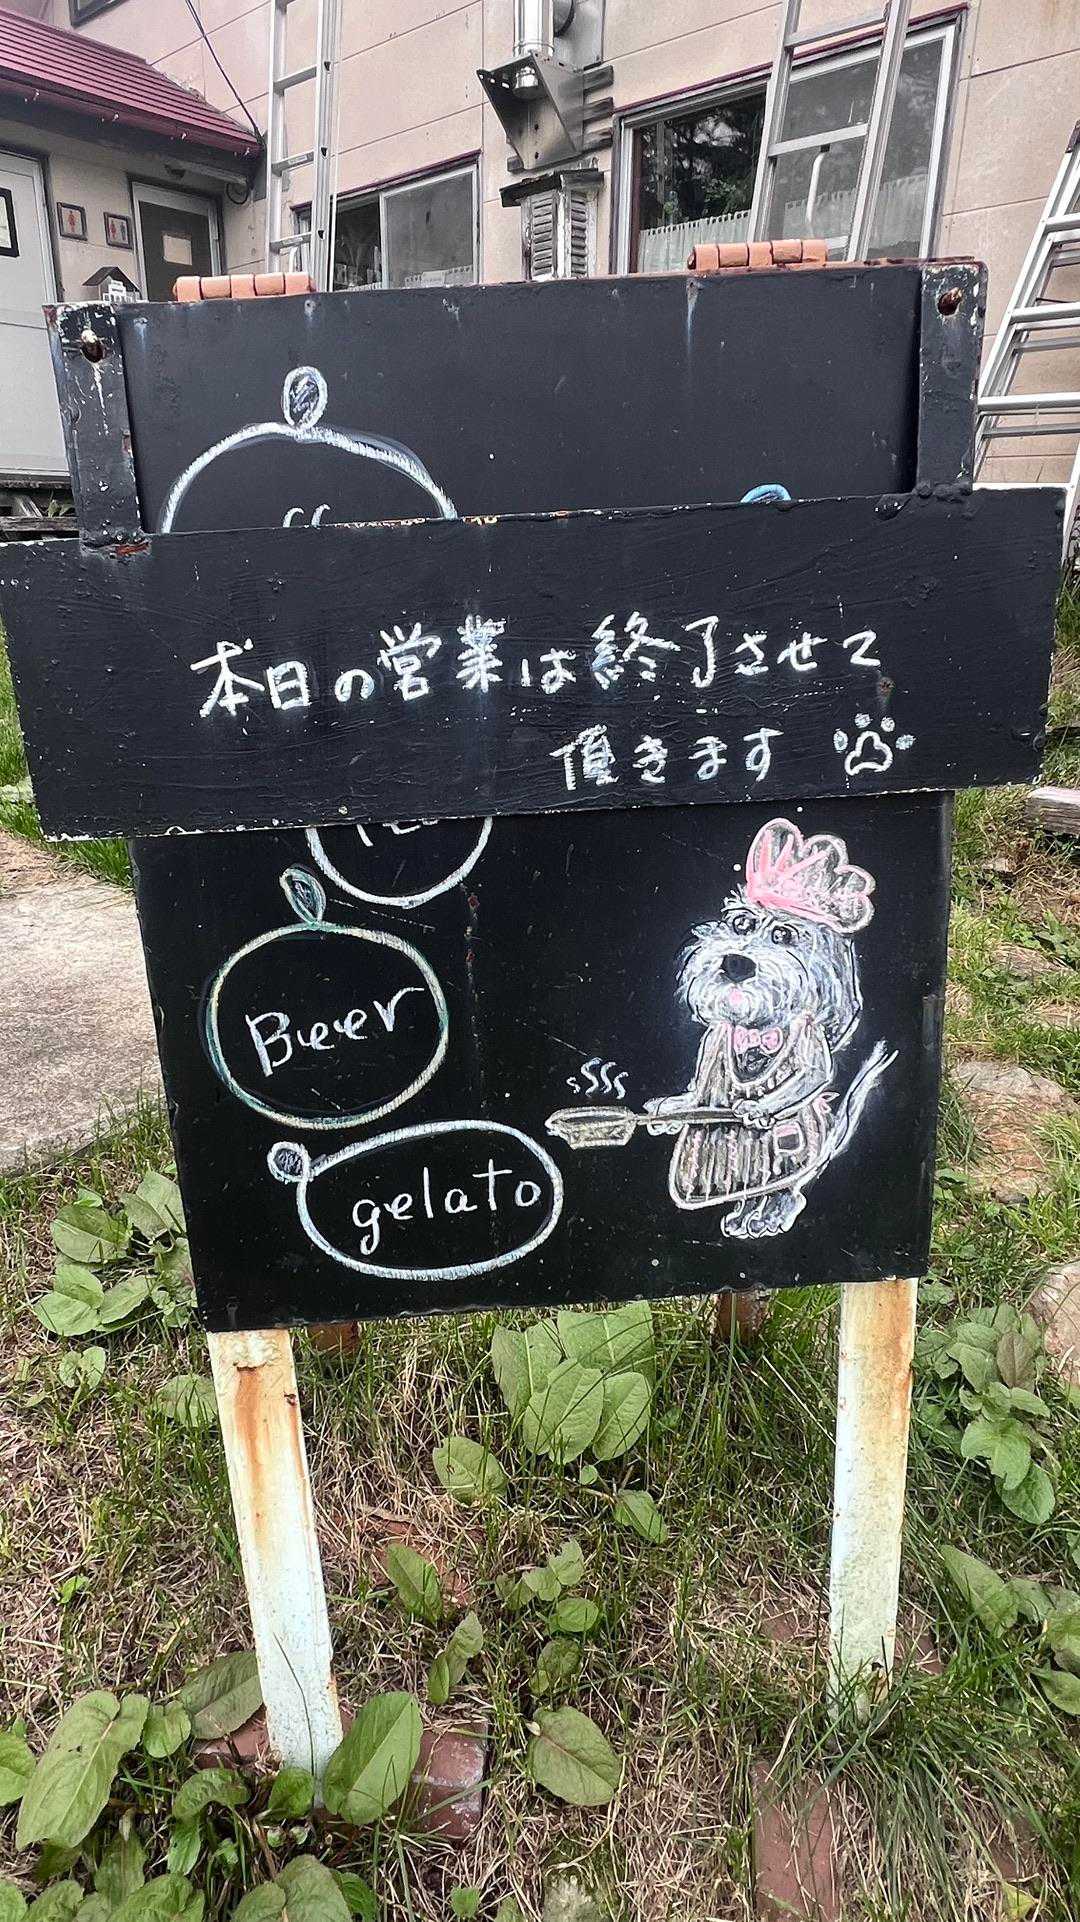 本日の営業は終了させて
頂きます
Beer
gelato
sSSS